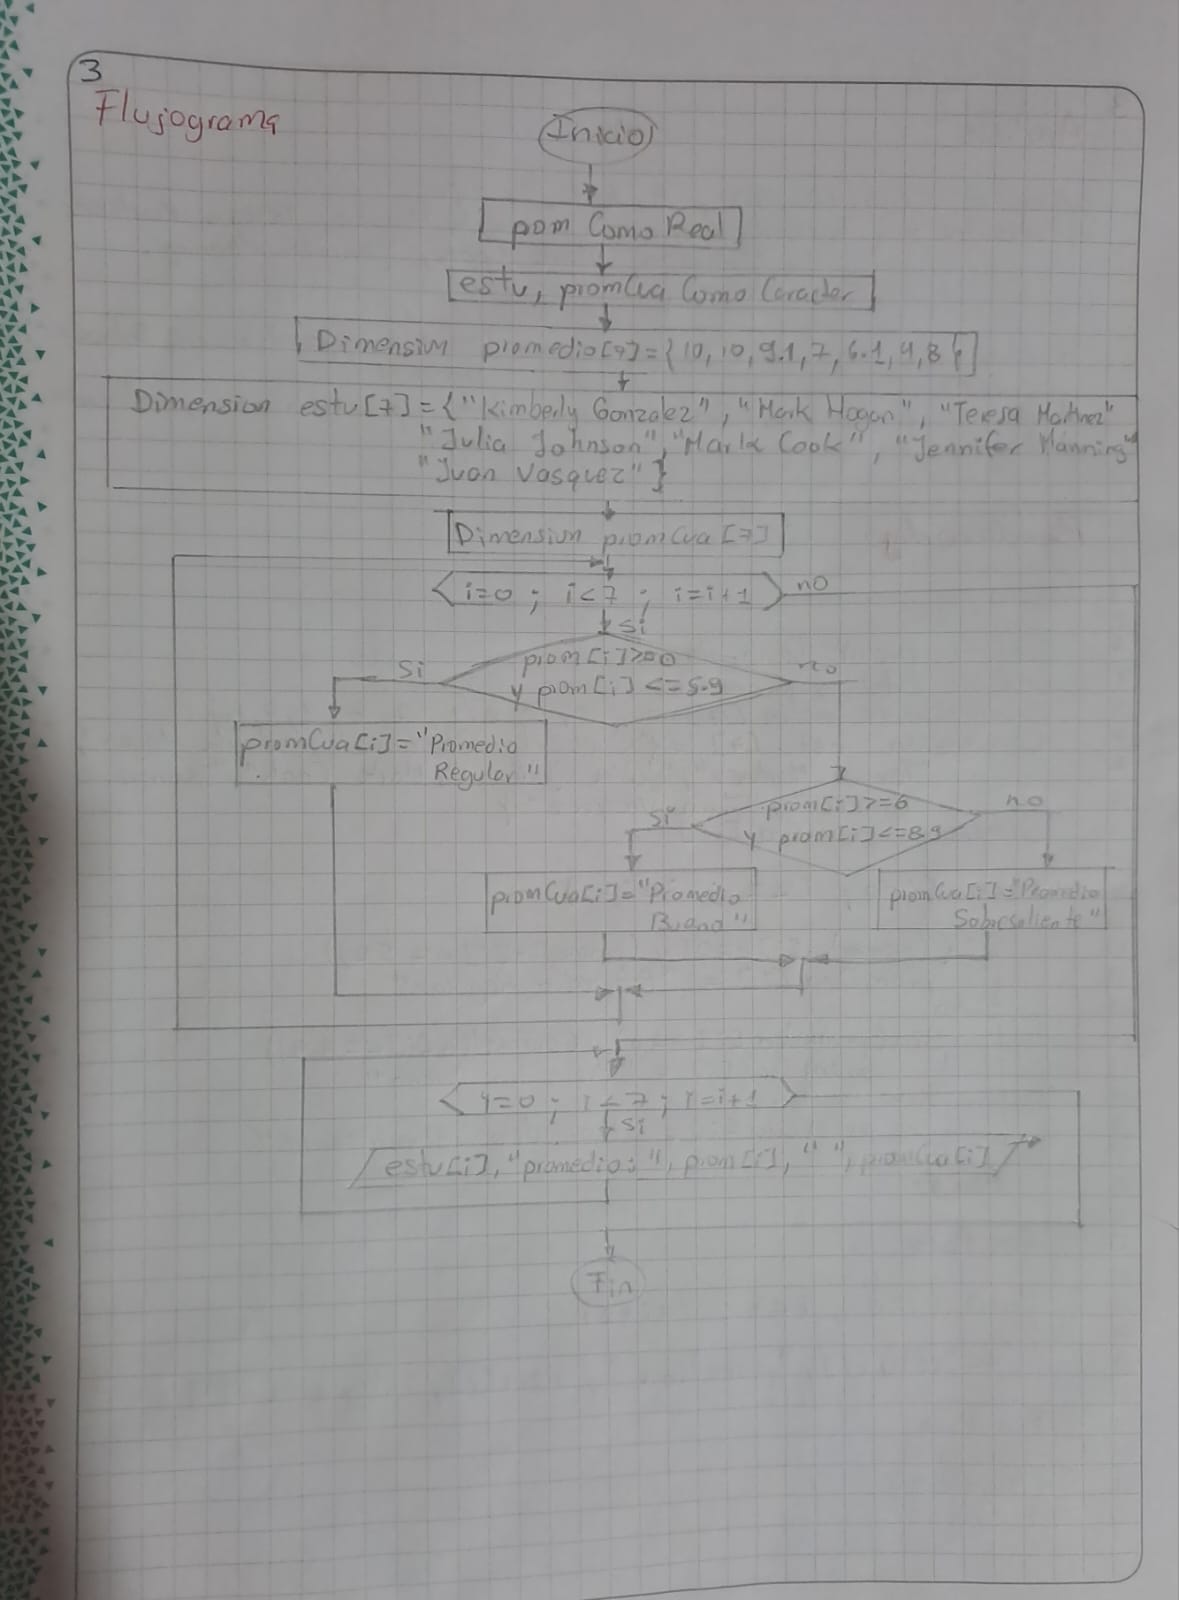 3
Flujograma
Inicio
pom Como Real
estu, promCua Como Caracter
Dimension promedio[7]={10, 10, 9.1, 7, 6.1, 4, 8}
Dimension estu[7]={"Kimberly Gonzalez", "Mark Hogan", "Teresa Martinez"
"Julia Johnson", "Mark Cook", "Jennifer Manning"
"Juan Vasquez"}
Dimension promCua[7]
i=0 ; i<7 ; i=i+1 no
si
prom[i]>=0
Si y prom[i]<=5.9 no
promCua[i]="Promedio
Regular"
prom[i]>=6 no
Si y prom[i]<=8.9
promCua[i]="Promedio
Bueno"
promCua[i]="Promedio
Sobresaliente"
i=0 ; i<7 ; i=i+1
si
estu[i], "promedio: ", prom[i], " ", promCua[i]
Fin